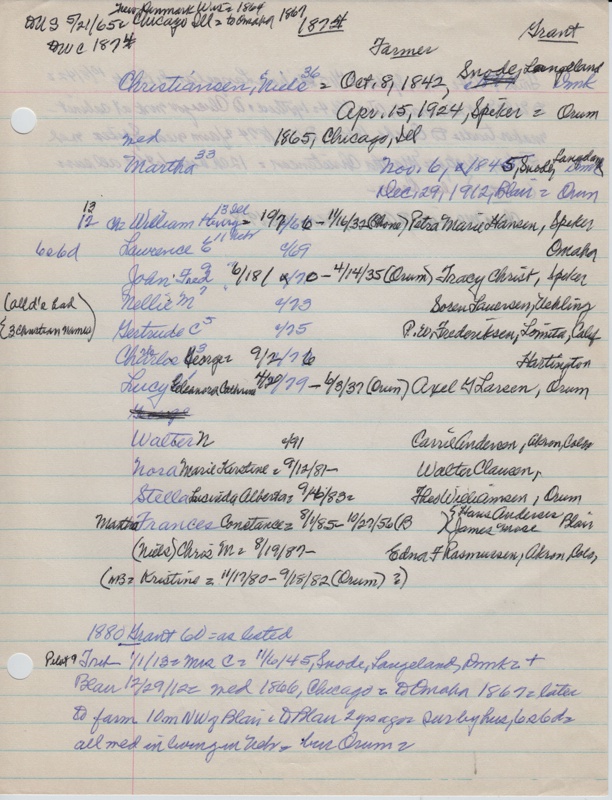 New Denmark Wis = 1864
to US 5/21/65 = Chicago Ill = to Omaha 1867
to WC 1874
1874
Farmer
Grant
Christiansen, Niels 36 = Oct. 8, 1842, Snode, Langeland Dmk
Apr. 15, 1924, Spiker = Orum
med 1865, Chicago, Ill
Martha 33 Nov. 6, 1845, Snode, Langeland Dmk
Dec. 29, 1912, Blair = Orum
13
12 ch William Henry 13 Ill = 10/7/66 - 11/16/32 (Rhone) Petra Marie Hansen, Spiker
6s6d Lawrence E 11 Nebr /69 Omaha
John Fred 9 6/18/ /70 - 4/14/35 (Orum) Tracy Christ, Spiker
(all d's had Nellie M 7 /73 Soren Laursen, Uehling
3 Christian names) Gertrude C 5 /75 P. W. Frederiksen, Lomita, Calif
Charles George 3 = 9/2/76 Hartington
Lucy Eleanora Cathrine 1 4/20/79 - 6/3/37 (Orum) Axel G Larsen, Orum
Walter N /91 Carrie Anderson, Akron, Colo
Nora Marie Kirstine = 9/12/81- Walter Clausen,
Stella Lucinda Alberta = 9/ /83= Theo Williamsen, Orum
Martha Frances Constance = 8/1/85 - 10/27/56 (B {Hans Andersen Blair
James
(Niels) Chris M = 8/19/87- Edna F Rasmussen, Akron, Colo,
(MB = Kristine = 11/17/80 - 9/18/82 (Orum) ?)
1880 Grant 60 = as listed
Pilot 9 Trib 1/1/13 = Mrs C = 11/6/45, Snode, Langeland, Dmk = +
Blair 12/29/12 = med 1866, Chicago = to Omaha 1867 = later
to farm 10m NW of Blair = to Blair 2 ys ago = sur by hus, 6s6d =
all med in living in Nebr = bur Orum =